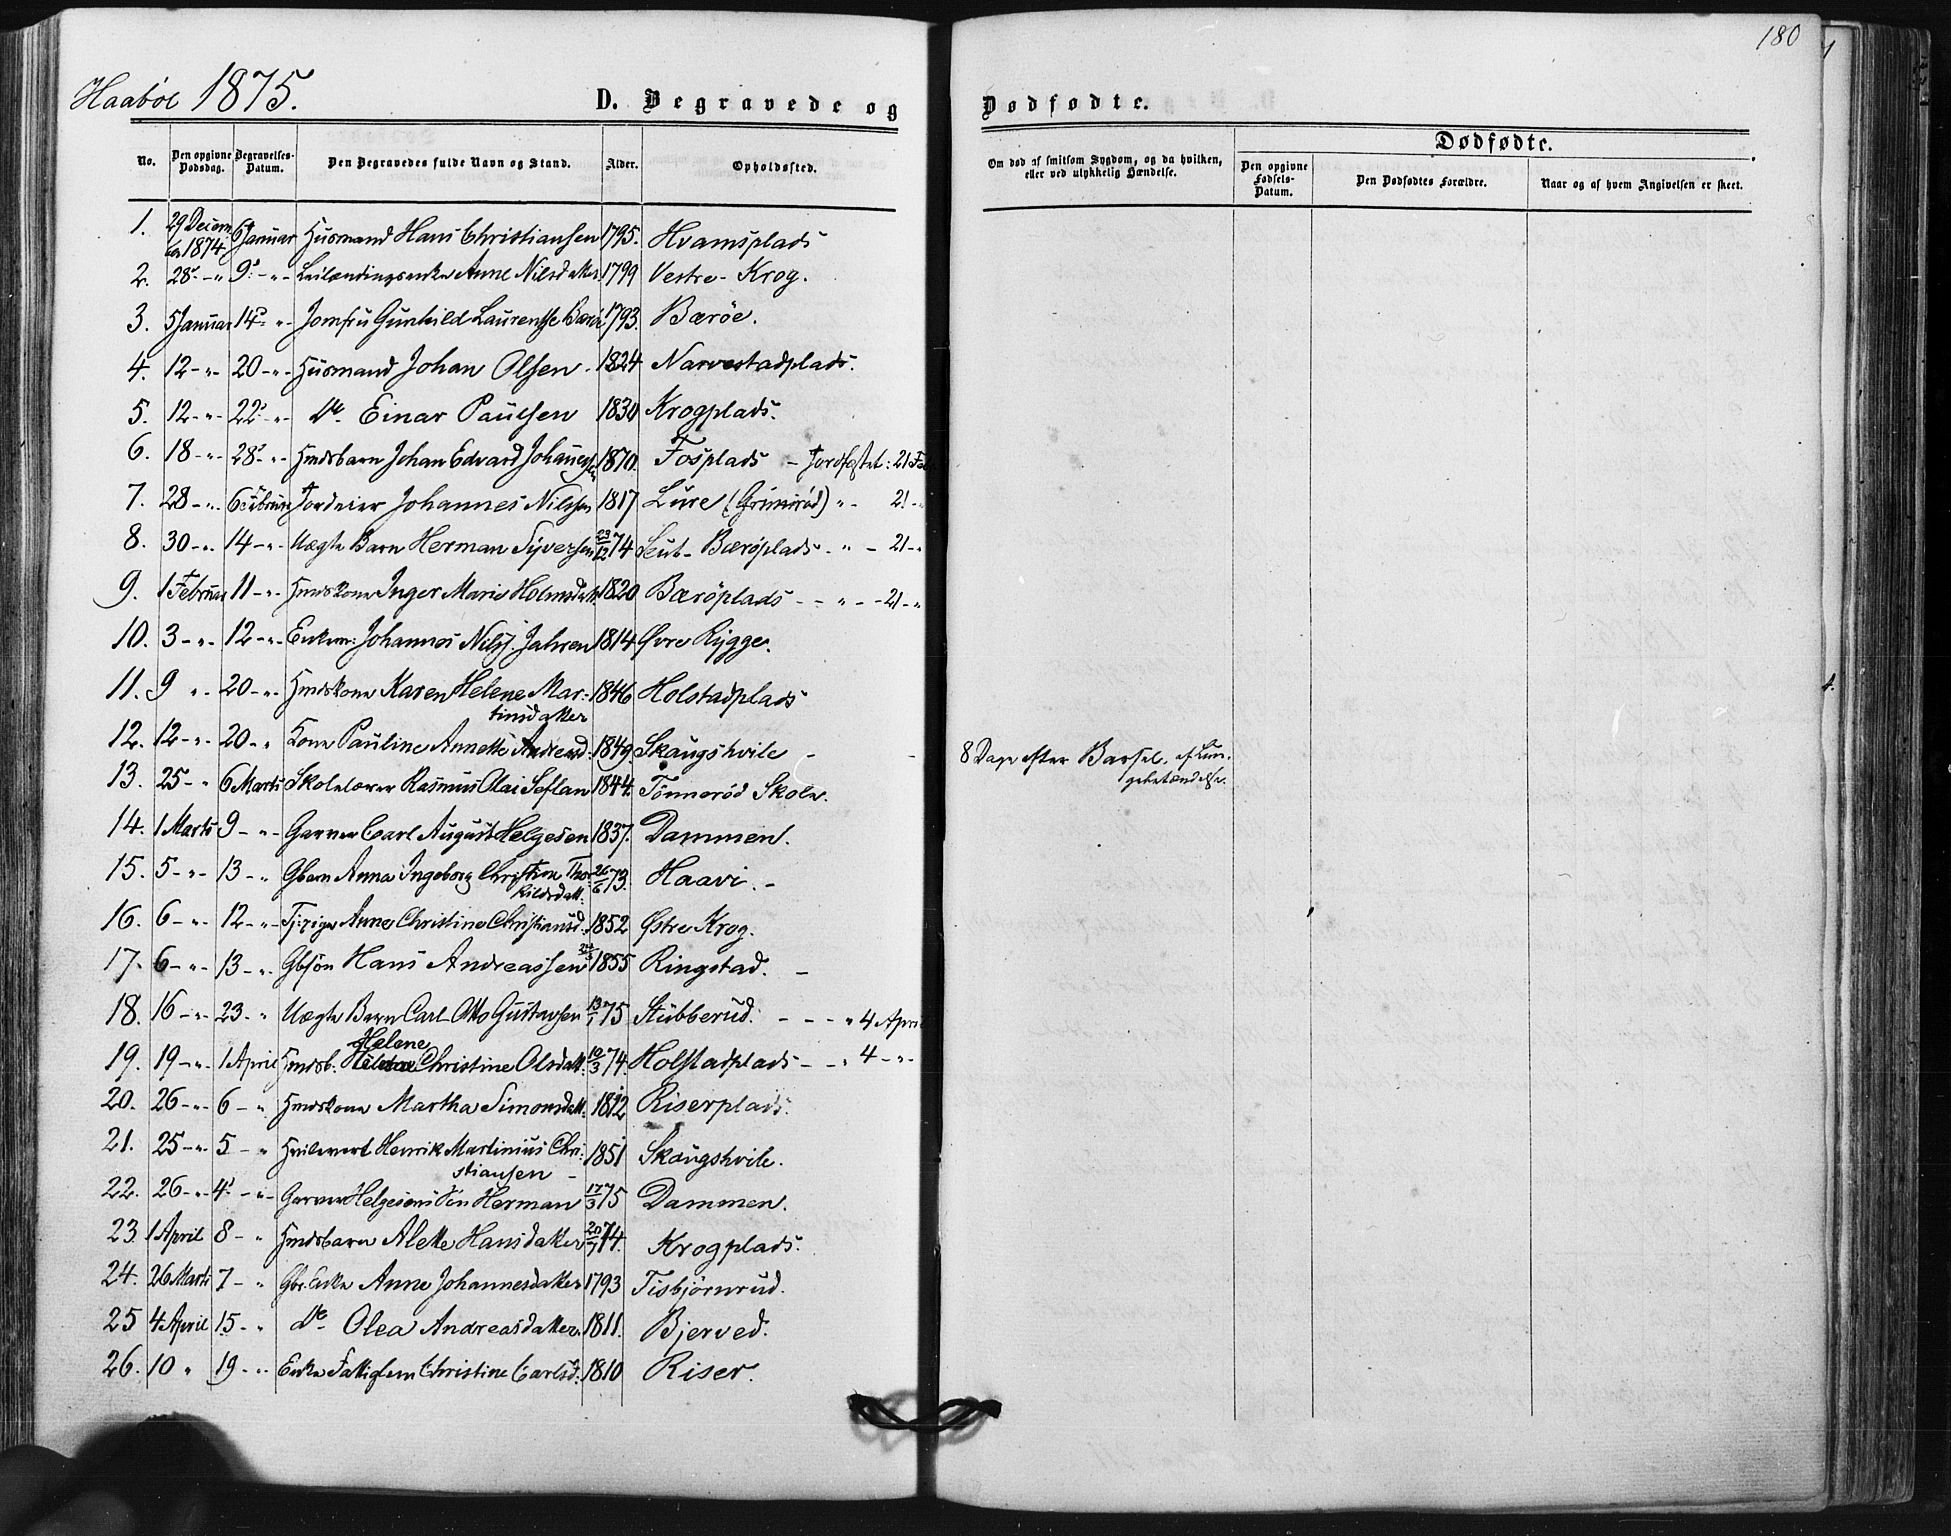 180
Haabøl 1875.
D. Begravede og
Dødfødte.
No.
Den opgivne Dødsdag.
Begravelses-Datum.
Den Begravedes fulde Navn og Stand.
Alder.
Opholdssted.
Om død af smitsom Sygdom, og da hvilken, eller ved ulykkelig Hændelse.
Dødfødte.
Den opgivne Fødsels-Datum.
Den Dødfødtes Forældre.
Naar og af hvem Angivelsen er skeet.
1. 29 Decem 1874 6 Januar Husmand Hans Christiansen 1795. Hvamsplads
2. 28 - " 9 - " Leilændingsenke Anne Nilsdatter 1799 Vestre-Krog.
3. 5 Januar 14 - " Jomfru Gunhild Laurentse Bærøe 1793. Bærøe.
4. 12 - " 20 - " Husmand Johan Olsen. 1824 Narvestadplads.
5. 12 - " 22 - " Do. Einar Paulsen 1830 Krogplads.
6. 18 - " 28 - " Hmdsbarn Johan Edvard Johannessen 1870. Fosplads - Jordfæstet: 21 Feb
7. 28 - " 6 Februar Jordeier Johannes Nilssen 1817 Lure (Grimsrød) " - 21 - "
8. 30 - " 14 - " Uægte Barn Herman Syversen 23/12 74 Seut-Bærøplads - " - 21 - "
9. 1 Februar 11 - " Hmdskone Inger Marie Holmsdatt. 1820 Bærøplads - - " - - 21 - "
10. 3 - " 12 - " Enkem: Johannes Nilss. Jahren 1814 Øvre Rygge.
11. 9 " 20 - " Hmdskone Karen Helene Mar-
tinsdatter 1846 Holstadplads
12. 12 - " 20 - " Kone Pauline Annette Andreasd. 1849. Skaugshvile - 8 Dage efter Barsel. af Lun-
gebetændelse.
13. 25 - " 6 Marts Skolelærer Rasmus Olai Seflan 1844. Tønnerød Skole.
14. 1 Marts 9 - " Garver Carl August Helgesen 1837. Dammen.
15. 5 - " 13 - " Gbarn Anna Ingeborg Christine Thor-
kildsdatt. 26/6 73. Haavi. -
16. 6 - " 12 - " Tj.pige Anne Christine Christiansd. 1852 Østre Krog.
17. 6 - " 13 - " Gbsøn Hans Andreassen 1855 Ringstad. -
18. 16 - " 23 - " Uægte Barn Carl Otto Gustavsen 13/1 75 Stubberud. - - - " 4 April
Helene
19. 19 - " 1 April Hmdsb. Christine Olsdatt. 10/3 74. Holstadplads - - " 4 - "
20. 26 - " 6 - " Hmdskone Martha Simonsdatt. 1812 Riserplads.
21. 25 - " 5 - " Hvilevert Henrik Martinius Chri-
stiansen - 1851 Skaugshvile.
22. 26 - " 4 - " Garver Helgesens Søn Herman 17/3 75 Dammen.
23 1 April 8 - " Hmdsbarn Alette Hansdatter 74. Krogplads.
24. 26 Marts 7 - " Gbr.Enke Anne Johannesdatter 1793 Tisbjørnrud.
25 4 April 15 - " Do. Olea Andreasdatter 1811. Bjerved.
26. 10 " 19 - " Enke Fattiglem Christine Carlsd. 1810 Riser.